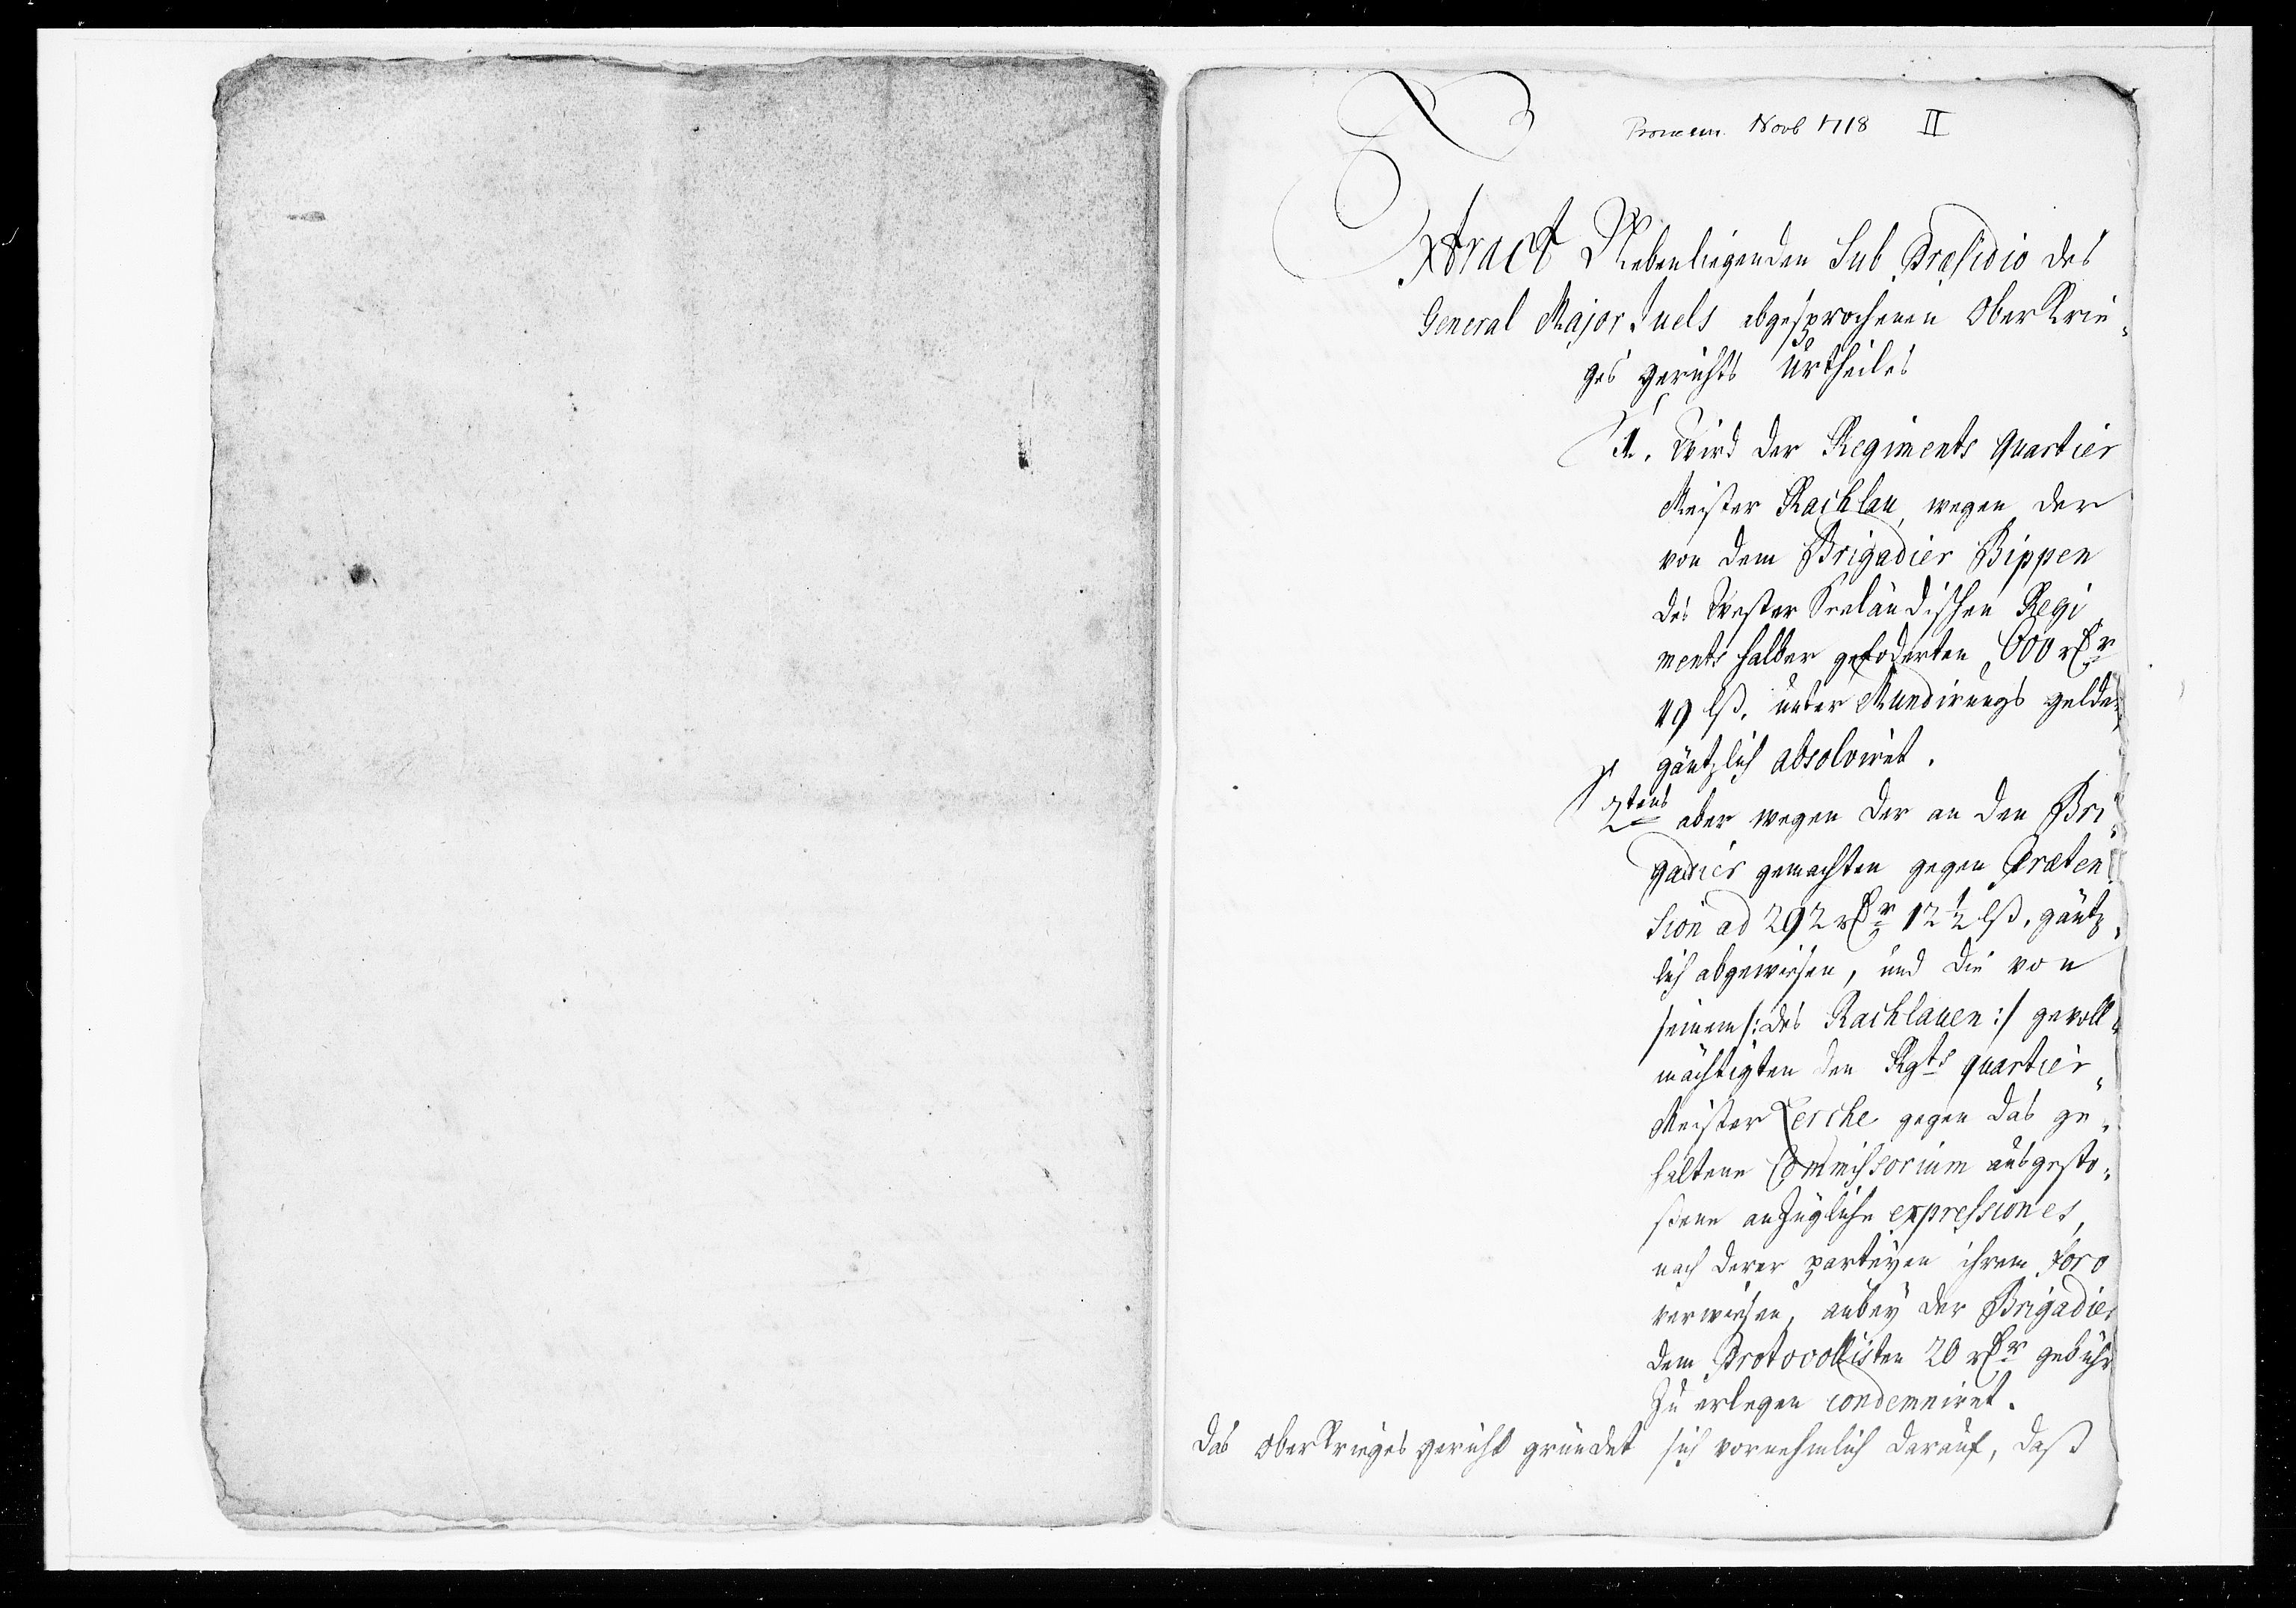 Novb 1718 II
Extract Nebenliegenden Sub Præsidio des
General Major Juels abgesprochenen Ober Krie-
ges gerichts Urtheiles
1. Wird der Regiments Quartier
Meister Rachlau, wegen der
von dem Brigadier Bippen
des Wester Seeländischen Regi
ments halber gefoderten 600 rthr
49 lß. unter Mundirungs gelder
gäntzlich absolviret.
2tens aber wegen der an den Bri-
gadier gemachten gegen Præten
sion ad 292 rthr 12½ lß. gäntz-
lich abgewiesen, und die von
seinem /: des Rachlauen :/ gevoll-
mächtigten den Rgts quartier-
Meister Lerche gegen das ge-
haltene Commissorium ausgesto-
ßene anzügliche expressiones,
nach derer parteyen ihrem foro
verwiesen, anbey der Brigadier
dem Protocollisten 20 rthr gebühr
zu erlegen condemniret.
Das Ober Krieges gericht gründet sich vornehmlich darauf, daß